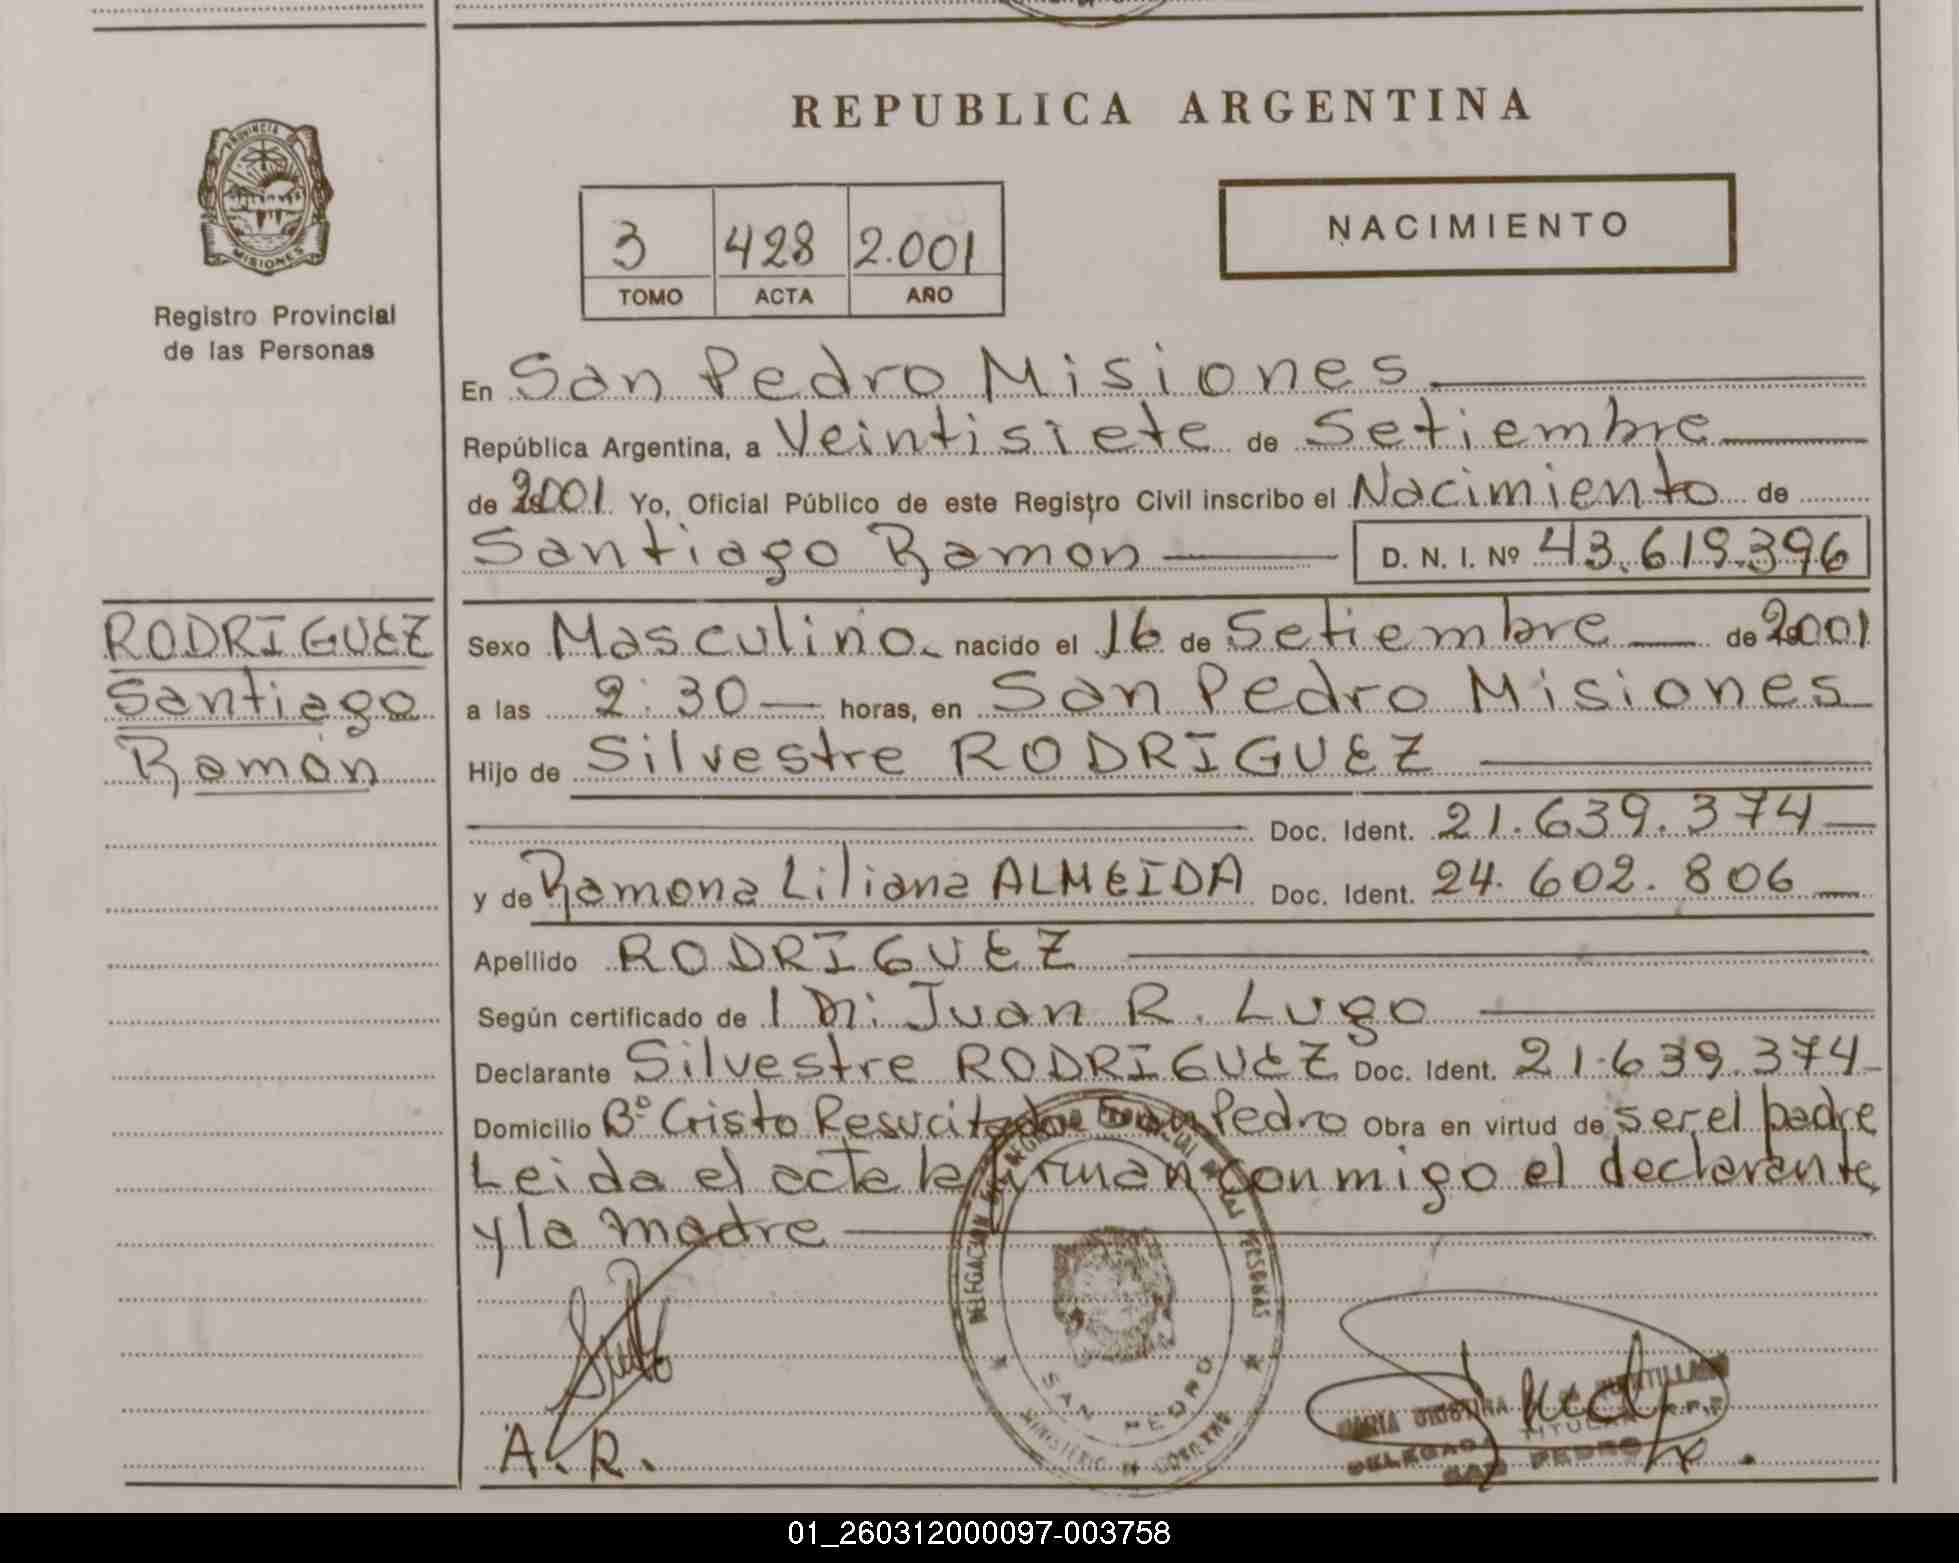 REPUBLICA ARGENTINA
PROVINCIA DE
MISIONES
Registro Provincial
de las Personas
3 428 2.001
TOMO ACTA AÑO
NACIMIENTO
En San Pedro Misiones
República Argentina, a Veintisiete de Setiembre
de 2001 Yo, Oficial Público de este Registro Civil inscribo el Nacimiento de
Santiago Ramon D. N. I. Nº 43.619.396
RODRIGUEZ
Santiago
Ramón
Sexo Masculino nacido el 16 de Setiembre de 2001
a las 2:30 horas, en San Pedro Misiones
Hijo de Silvestre RODRIGUEZ
Doc. Ident. 21.639.374
y de Ramona Liliana ALMEIDA Doc. Ident. 24.602.806
Apellido RODRIGUEZ
Según certificado de Juan R. Lugo
Declarante Silvestre RODRIGUEZ Doc. Ident. 21.639.374
Domicilio Bº Cristo Resucitado San Pedro Obra en virtud de ser el padre
Leida el acta la firman conmigo el declarante
y la madre
DELEGACION REGISTRO PROVINCIAL DE LAS PERSONAS
SAN PEDRO
MINISTERIO DE GOBIERNO
A. R.
MARIA CRISTINA
DELEGADA TITULAR R.P.P.
SAN PEDRO
01_260312000097-003758